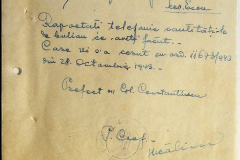 Raportati telefonic cantitatile
de bulion ce aveti facut.
Care vi s'a cerut cu ord. 11673/943
din 28 Octombrie 1943.
Prefect ss Col. Constantinescu
P. Șef